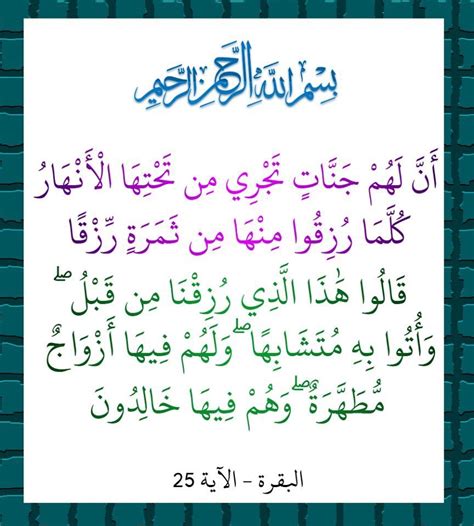 بِسْمِ اللَّهِ الرَّحْمَٰنِ الرَّحِيمِ
أَنَّ لَهُمْ جَنَّاتٍ تَجْرِي مِن تَحْتِهَا الْأَنْهَارُ
كُلَّمَا رُزِقُوا مِنْهَا مِن ثَمَرَةٍ رِّزْقًا
قَالُوا هَٰذَا الَّذِي رُزِقْنَا مِن قَبْلُ ۖ
وَأُتُوا بِهِ مُتَشَابِهًا ۖ وَلَهُمْ فِيهَا أَزْوَاجٌ
مُّطَهَّرَةٌ ۖ وَهُمْ فِيهَا خَالِدُونَ
البقرة - الآية 25